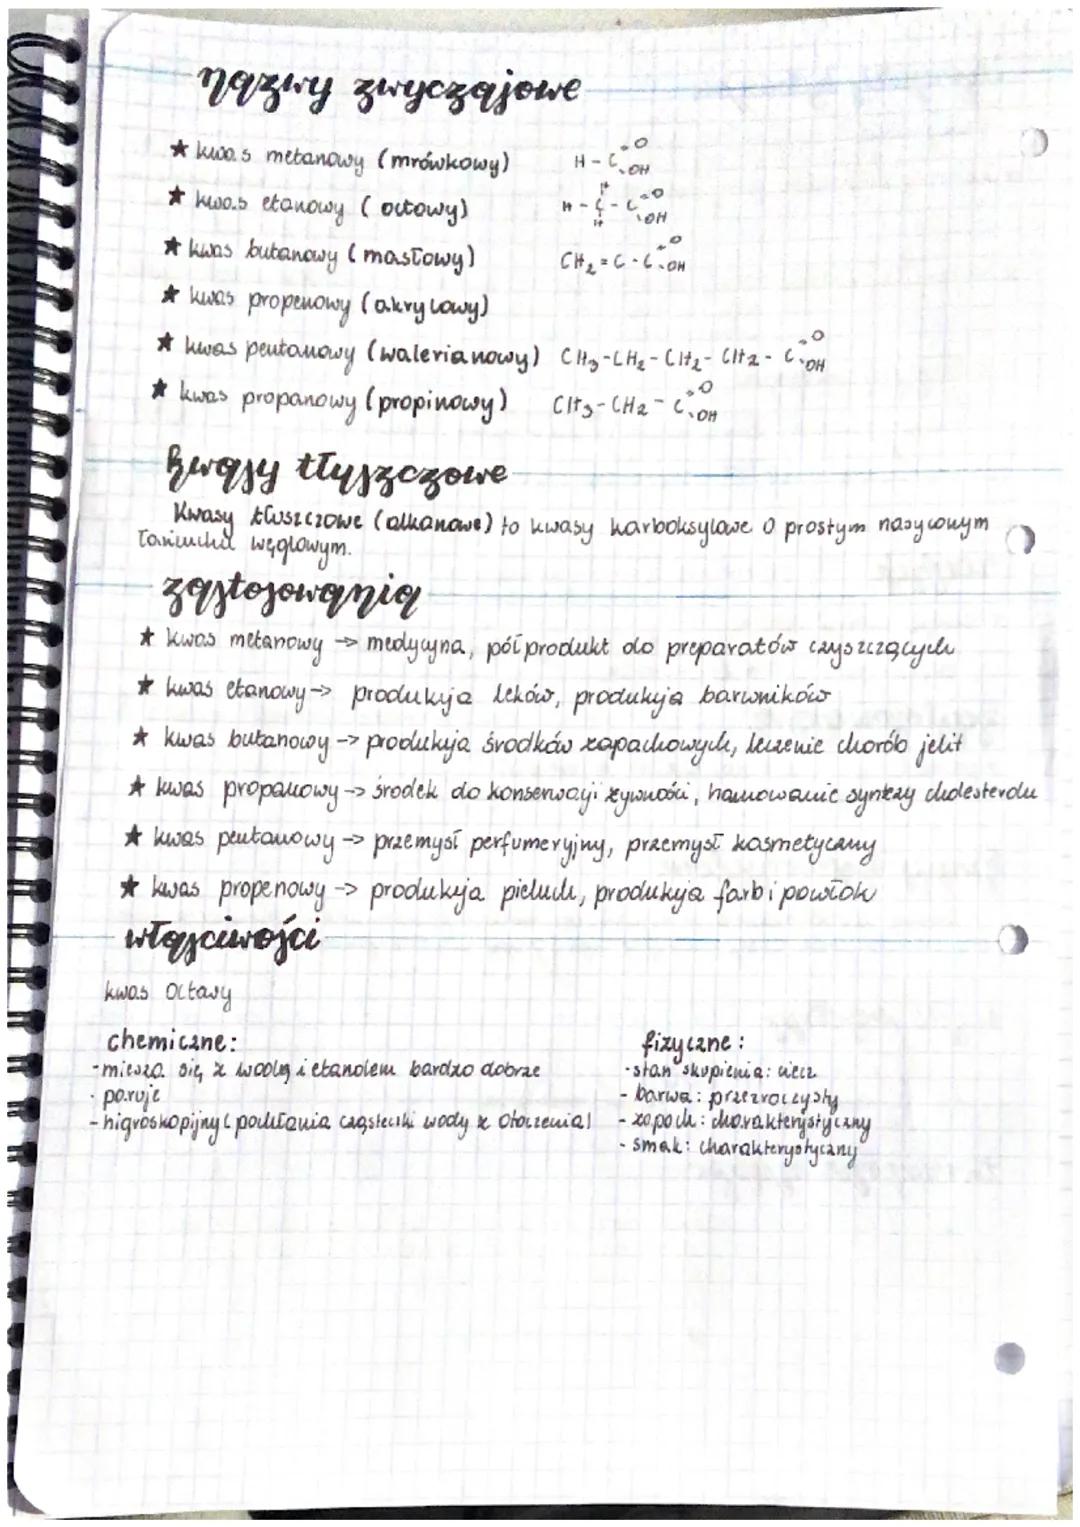 nazwy zwyczajowe
★ kwas metanowy (mrówkowy) H-C=O OH
★ kwas etanowy (octowy) H-C-C=O OH H H
★ kwas butanowy (masłowy) CH2=C-C=O OH
★ kwas propenowy (akrylowy)
★ kwas pentanowy (walerianowy) CH3-CH2-CH2-CH2-C=O OH
★ kwas propanowy (propinowy) CH3-CH2-C=O OH
kwasy tłuszczowe
Kwasy tłuszczowe (alkanowe) to kwasy karboksylowe o prostym nasyconym
łańcuchu węglowym.
zastosowania
★ kwas metanowy -> medycyna, półprodukt do preparatów czyszczących
★ kwas etanowy -> produkcja leków, produkcja barwników
★ kwas butanowy -> produkcja środków zapachowych, leczenie chorób jelit
★ kwas propanowy -> środek do konserwacji żywności, hamowanie syntezy cholesterolu
★ kwas pentanowy -> przemysł perfumeryjny, przemysł kosmetyczny
★ kwas propenowy -> produkcja pieluch, produkcja farb i powłok
właściwości
kwas octowy
chemiczne: fizyczne:
-miesza się z wodą i etanolem bardzo dobrze -stan skupienia: ciecz
-paruje -barwa: przezroczysty
-higroskopijny (pochłania cząsteczki wody z otoczenia) -zapach: charakterystyczny
-smak: charakterystyczny